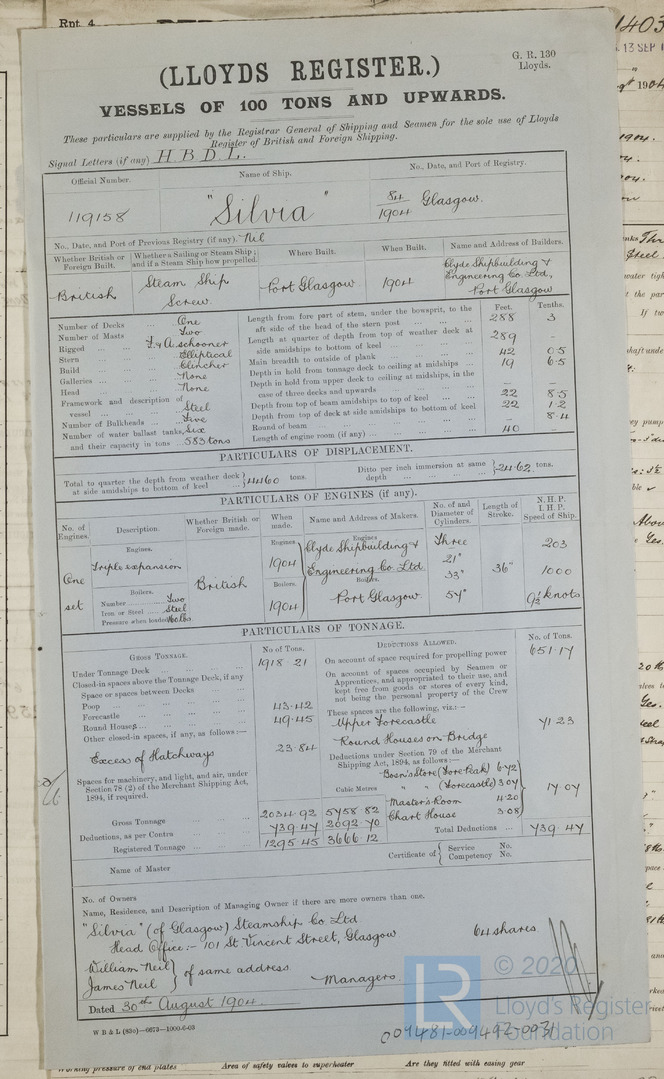 Rpt. 4
G. R. 130
Lloyds.
(LLOYDS REGISTER.)
VESSELS OF 100 TONS AND UPWARDS.
These particulars are supplied by the Registrar General of Shipping and Seamen for the sole use of Lloyds
Register of British and Foreign Shipping.
Signal Letters (if any) H B D L.
Official Number. Name of Ship. No., Date, and Port of Registry.
119158 "Silvia" 84/1904 Glasgow.
No., Date, and Port of Previous Registry (if any). Nil
Whether British or Foreign Built. Whether a Sailing or Steam Ship; and if a Steam Ship how propelled. Where Built. When Built. Name and Address of Builders.
British Steam Ship Screw. Port Glasgow 1904 Clyde Shipbuilding & Engineering Co. Ltd., Port Glasgow
Number of Decks One
Number of Masts Two
Rigged F. & A. schooner
Stern Elliptical
Build Clincher
Galleries None
Head None
Framework and description of vessel Steel
Number of Bulkheads Five
Number of water ballast tanks, Six
and their capacity in tons 583 tons
Feet. Tenths.
Length from fore part of stem, under the bowsprit, to the aft side of the head of the stern post 288 3
Length at quarter of depth from top of weather deck at side amidships to bottom of keel 289 -
Main breadth to outside of plank 42 0.5
Depth in hold from tonnage deck to ceiling at midships 19 6.5
Depth in hold from upper deck to ceiling at midships, in the case of three decks and upwards - -
Depth from top of beam amidships to top of keel 22 8.5
Depth from top of deck at side amidships to bottom of keel 22 1.2
Round of beam 8.4
Length of engine room (if any) 40
PARTICULARS OF DISPLACEMENT.
Total to quarter the depth from weather deck at side amidships to bottom of keel 4460 tons.
Ditto per inch immersion at same depth 24.62 tons.
PARTICULARS OF ENGINES (if any).
No. of Engines. Description. Whether British or Foreign made. When made. Name and Address of Makers. No. of and Diameter of Cylinders. Length of Stroke. N.H.P. I.H.P. Speed of Ship.
Engines. Engines Engines
One set Triple expansion British 1904 Clyde Shipbuilding & Engineering Co. Ltd Three 21" 33" 54" 36" 203 1000 9½ knots
Boilers. Boilers. Boilers.
Number Two
Iron or Steel Steel
Pressure when loaded 160 lbs.
1904 Port Glasgow
PARTICULARS OF TONNAGE.
GROSS TONNAGE. No of Tons.
Under Tonnage Deck 1918 21
Closed-in spaces above the Tonnage Deck, if any
Space or spaces between Decks
Poop 43.42
Forecastle 49.45
Round Houses
Other closed-in spaces, if any, as follows:—
Excess of Hatchways 23.84
Spaces for machinery, and light, and air, under Section 78 (2) of the Merchant Shipping Act, 1894, if required.
Cubic Metres
Gross Tonnage 2034.92 5758.82
Deductions, as per Contra 739.47 2092.70
Registered Tonnage 1295.45 3666.12
DEDUCTIONS ALLOWED. No. of Tons.
On account of space required for propelling power 651.17
On account of spaces occupied by Seamen or Apprentices, and appropriated to their use, and kept free from goods or stores of every kind, not being the personal property of the Crew
These spaces are the following, viz.:—
Upper Forecastle
Round Houses on Bridge 71.23
Deductions under Section 79 of the Merchant Shipping Act, 1894, as follows:—
Bosn's Store (Fore Peak) 6.72
" " (Forecastle) 3.07
Master's Room 4.20
Chart House 3.08
17.07
Total Deductions 739.47
Name of Master
Certificate of Service No. Competency No.
No. of Owners
Name, Residence, and Description of Managing Owner if there are more owners than one.
"Silvia" (of Glasgow) Steamship Co Ltd
Head Office:- 101 St Vincent Street, Glasgow 64 shares
William Neil
James Neil } of same address
Managers.
Dated 30th August 1904.
W B & L (850)—6673—1000-6-03
LR © 2020
Lloyd's Register
Foundation
009481-009492-0931
Working pressure of end plates Area of safety valves to superheater Are they fitted with easing gear